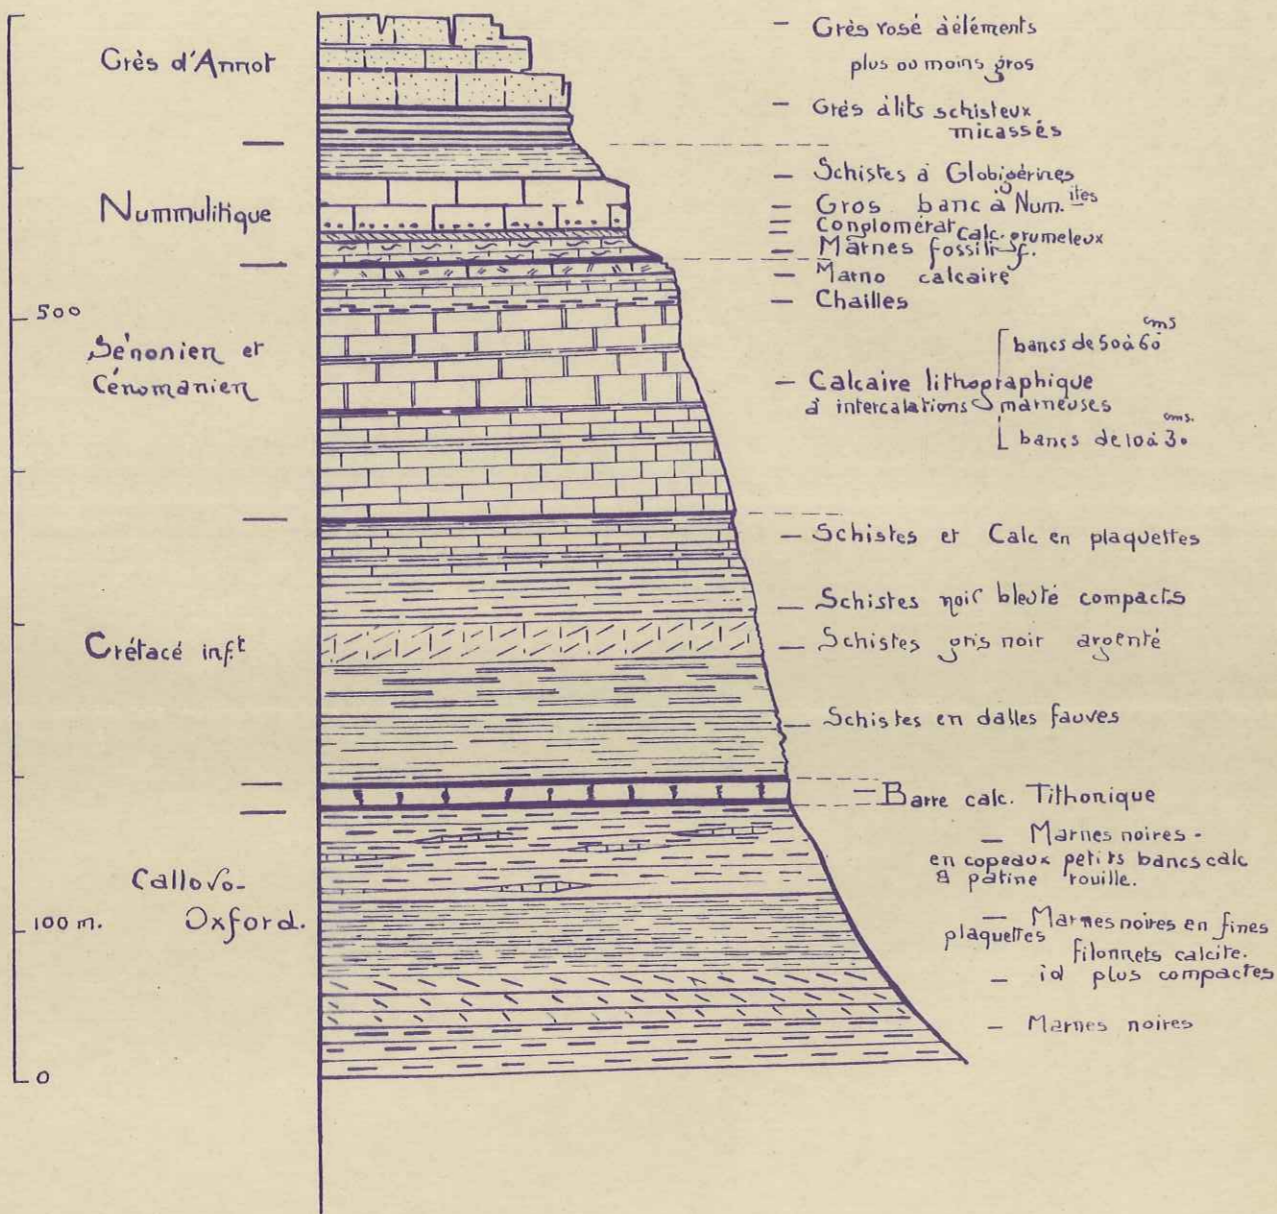 Grès d'Annot
Nummulitique
500
Sénonien et
Cénomanien
Crétacé inf.t
Callovo-
Oxford.
100 m.
0
— Grès rosé à éléments
plus ou moins gros
— Grès à lits schisteux
micassés
— Schistes à Globigérines
— Gros banc à Num.ites
— Conglomérat calc. grumeleux
— Marnes fossilif.
— Marno calcaire
— Chailles
bancs de 50 à 60 cms
— Calcaire lithographique
à intercalations marneuses
bancs de 10 à 30 cms.
— Schistes et Calc en plaquettes
— Schistes noir bleuté compacts
— Schistes gris noir argenté
— Schistes en dalles fauves
Barre calc. Tithonique
— Marnes noires -
en copeaux petits bancs calc
à patine rouille.
— Marnes noires en fines
plaquettes filonnets calcite.
— id plus compactes
— Marnes noires